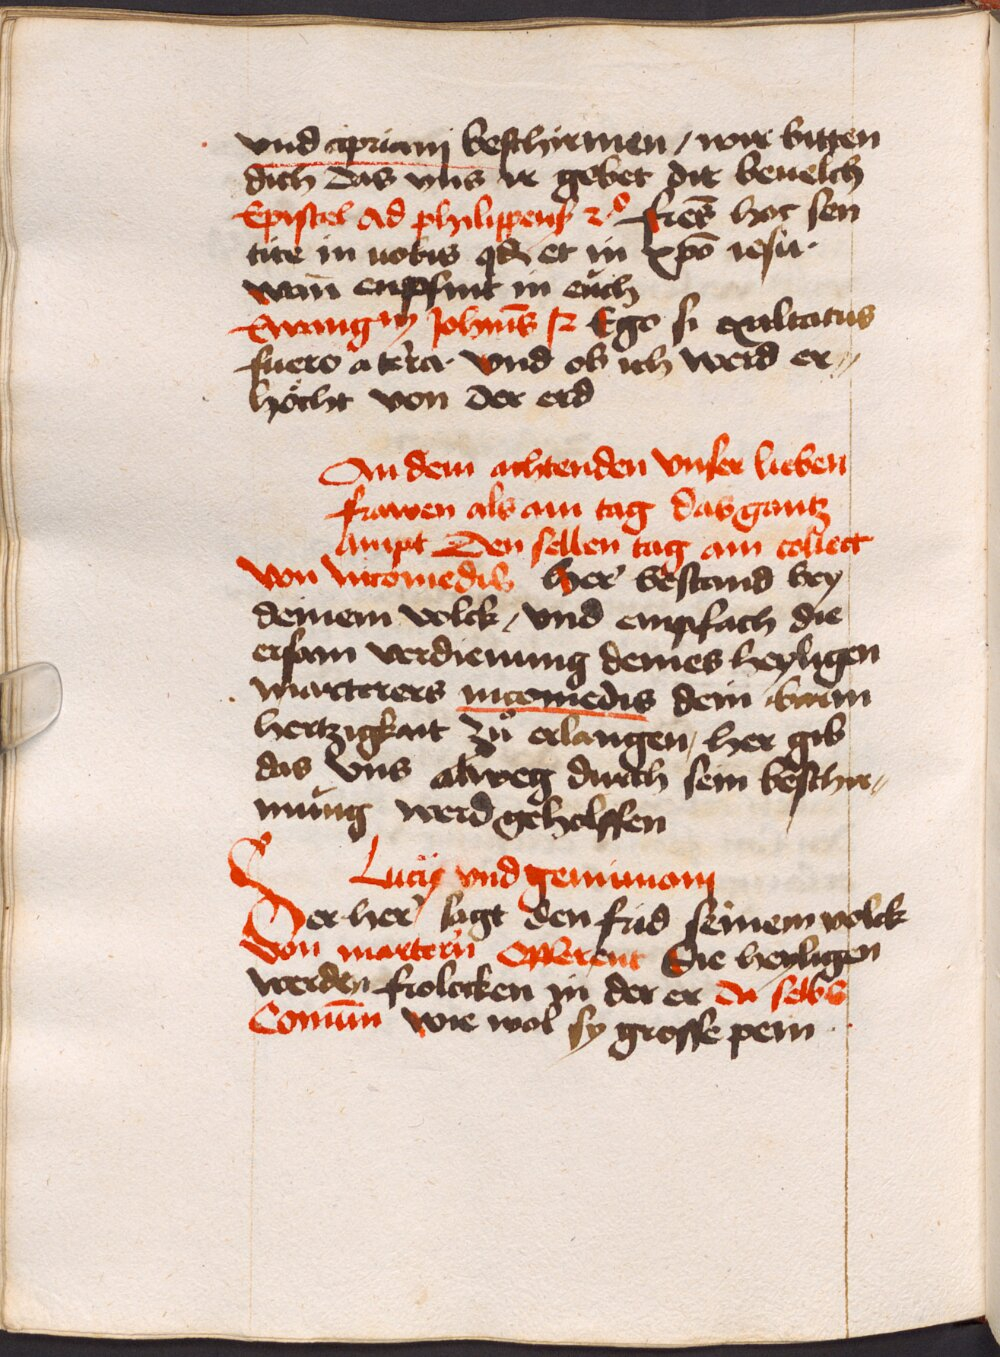 vnd cipriani beschirmen / wir bitten
dich das vns ir gebet dir beuelch
Epistel Ad philippenß 2º fres̄ hoc sen
tite in uobis qd et in xpō iesu ·
wan̄ enpfint in eüch
Ewangm Johan̄s 12 Ego si exaltatus
fuero a terra · vnd ob ich werd er⸗
höcht von der erd
An dem achtenden vnser lieben
frawen als am tag das gantz
Ampt Den selben tag am collect
von nicomedis her bestand bey
deinem volck / vnd empfach die
ersam verdienung deines heyligen
marterers nicomedis dein barm
hertzigkait zů erlangen / her gib
das vns alweg durch sein beschir⸗
mung werd geholffen
Lucij vnd geminiani
Der her sagt den frid seinem volck
von martern Offerent Die heyligen
werden frolocken in der er Du selbs
Comūn wie wol sy grosse pein ·